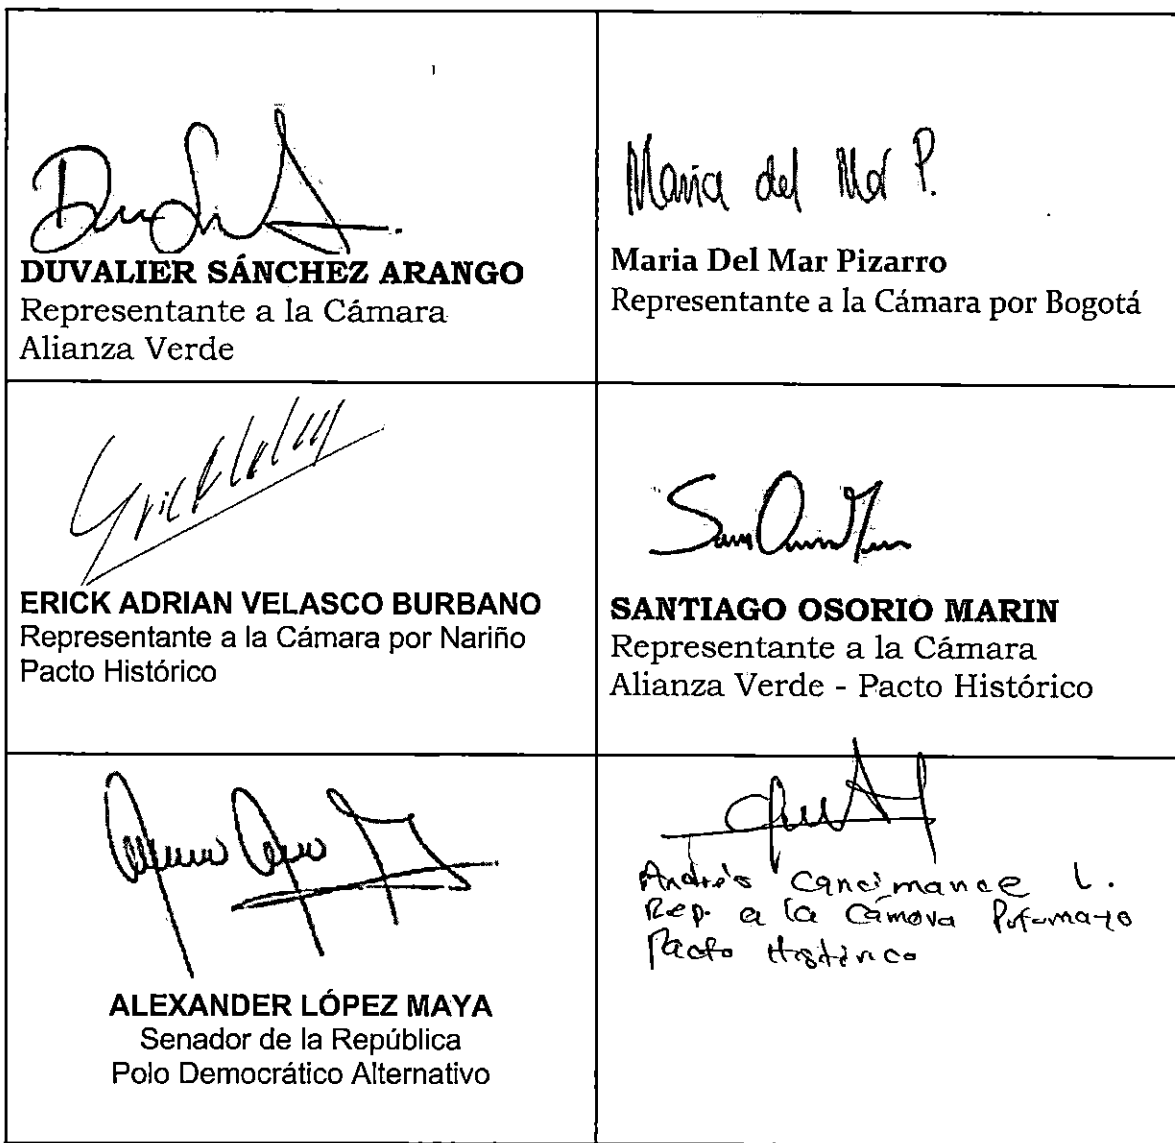 DUVALIER SÁNCHEZ ARANGO
Representante a la Cámara
Alianza Verde
Maria del Mar P.
Maria Del Mar Pizarro
Representante a la Cámara por Bogotá
ERICK ADRIAN VELASCO BURBANO
Representante a la Cámara por Nariño
Pacto Histórico
SANTIAGO OSORIO MARIN
Representante a la Cámara
Alianza Verde - Pacto Histórico
ALEXANDER LÓPEZ MAYA
Senador de la República
Polo Democrático Alternativo
Andrés Cancimance L.
Rep. a la Cámara Putumayo
Pacto Histórico